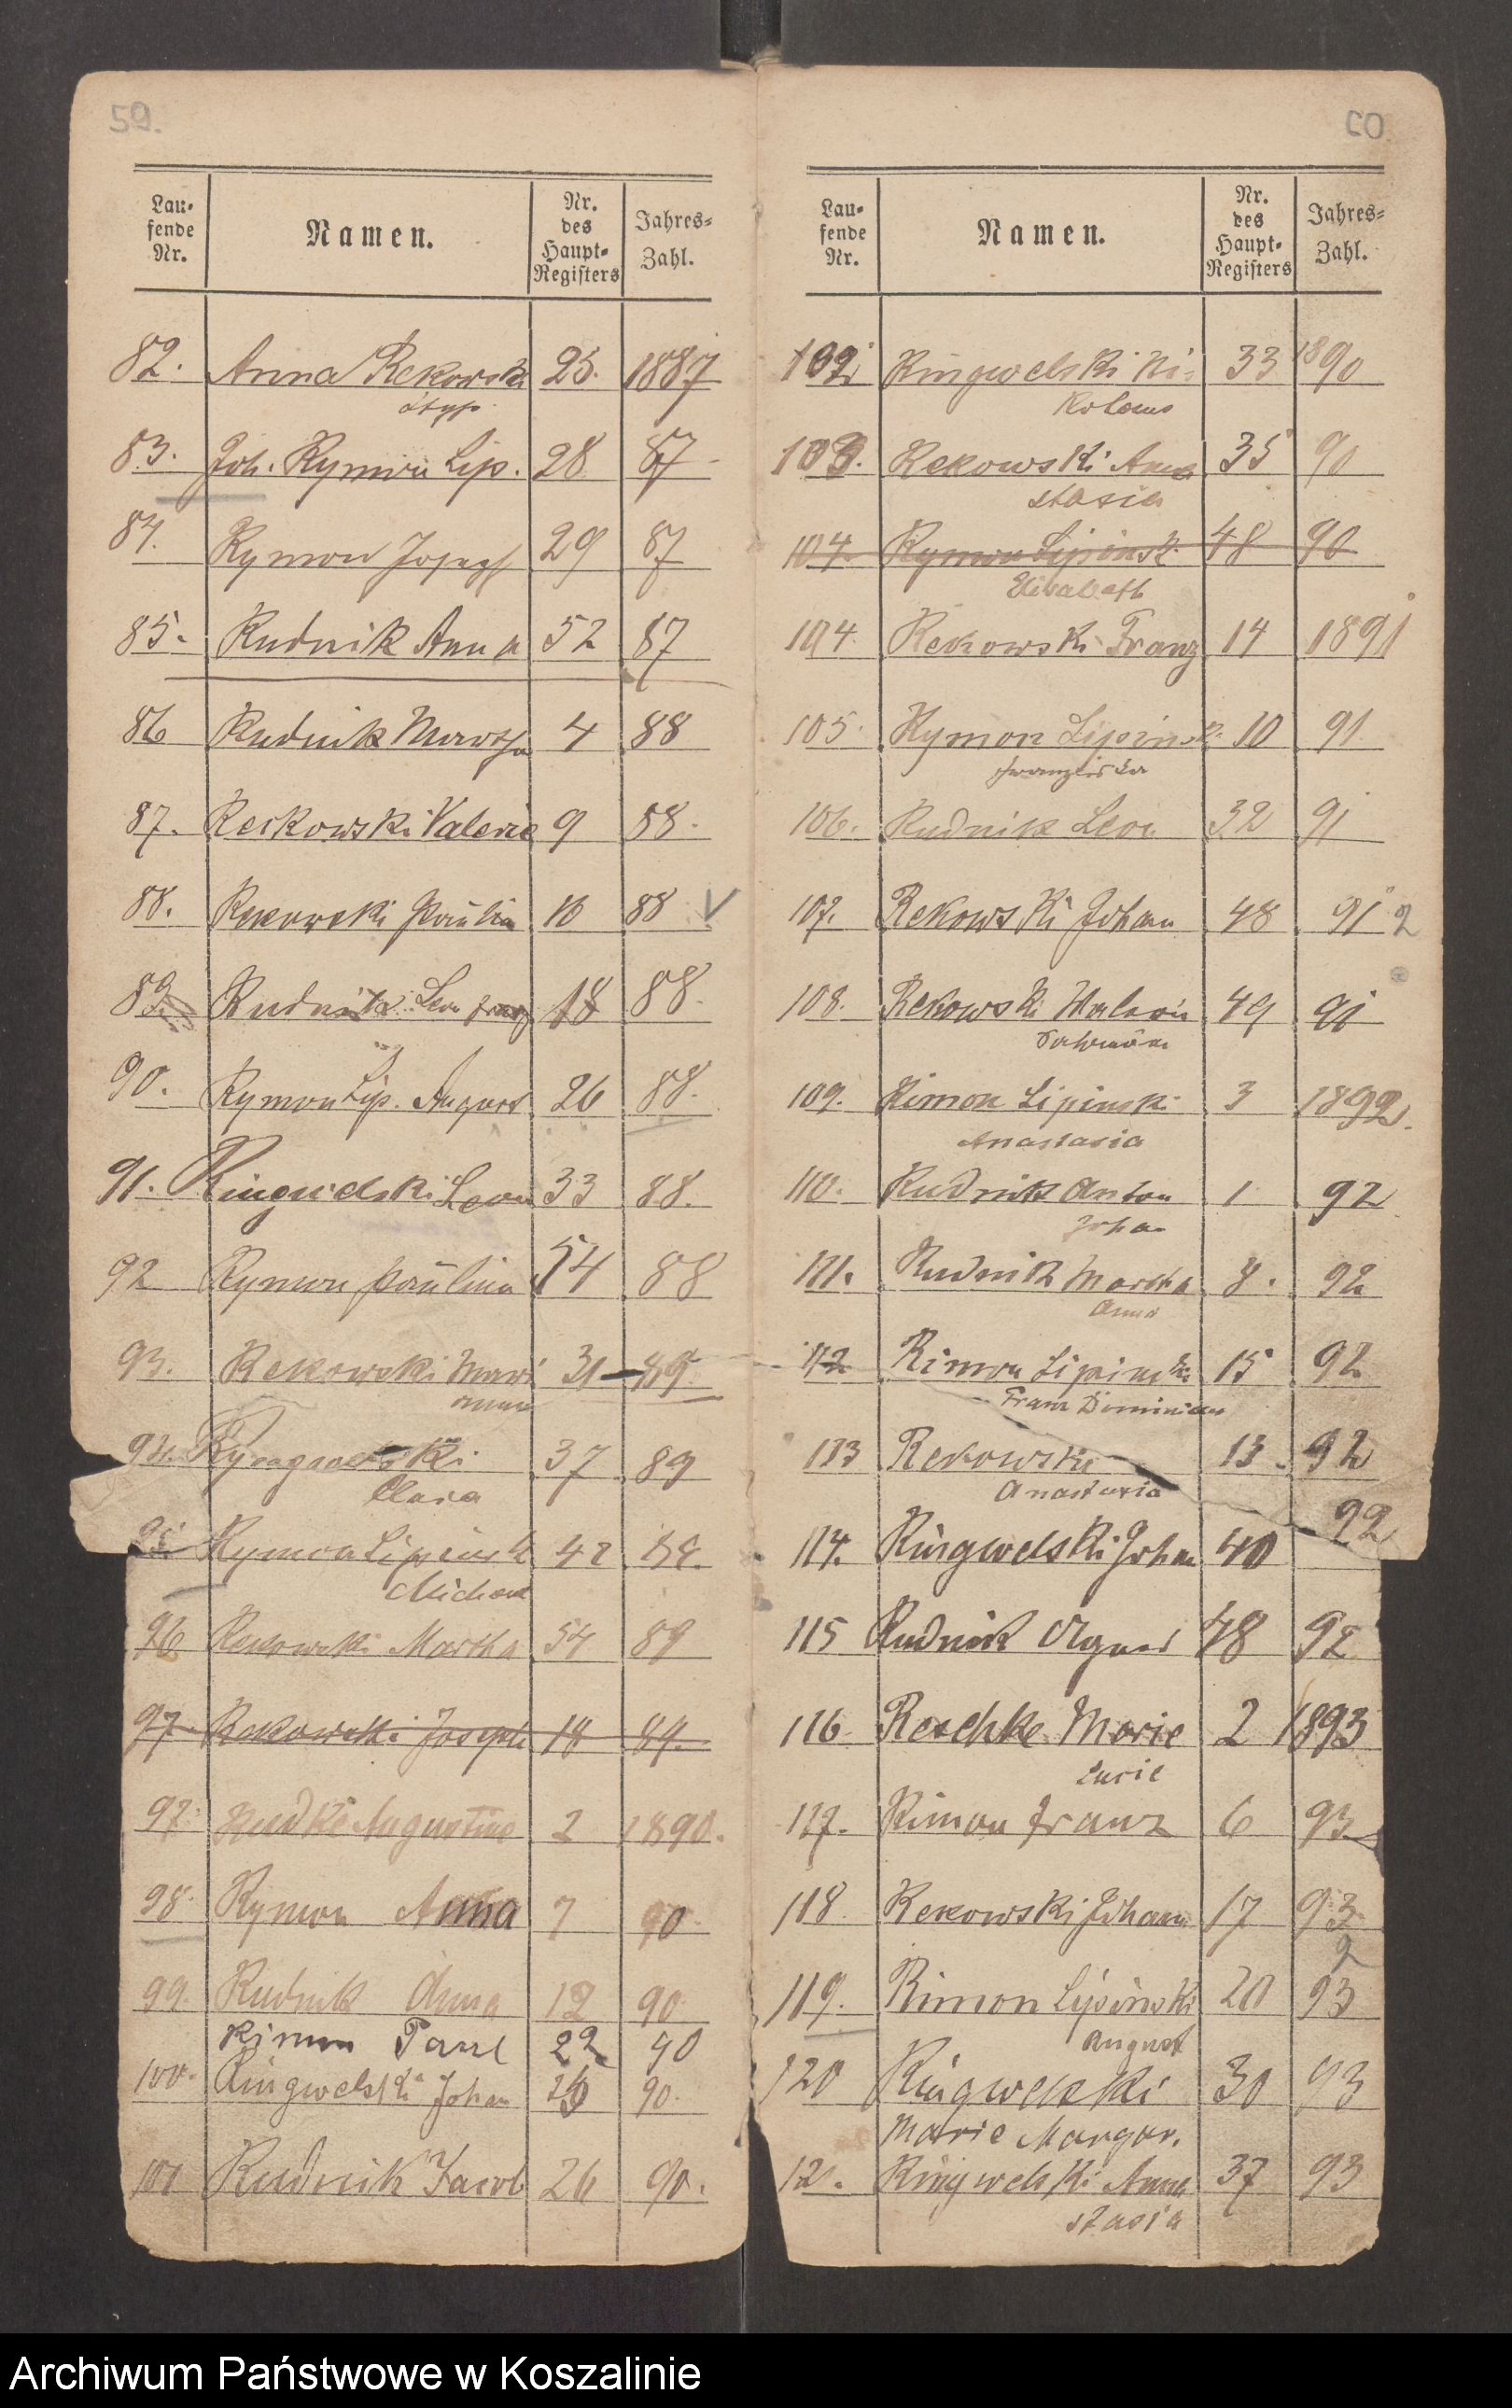 59.
Lau-
fende
Nr.
Namen.
Nr.
des
Haupt-
Registers
Jahres-
Zahl.
82. Anna Rekowski 25. 1887
83. Joh. Rymon Lip. 28 87
84. Rymon Joseph 29 87
85. Rudnik Anna 52 87
86 Rudnik Martha 4 88
87. Reckowski Valerie 9 88.
88. Rekowski Paulin 10 88
89. Rudnik Leo Franz 18 88.
90. Rymon Lip. August 26 88.
91. Ringwelski Leon 33 88.
92 Rymon Paulina 54 88
93. Rekowski Mari 31 89
anna
94. Ryngwelski 37 89
Clara
95. Rymon Lipinsk 42
Michael
96 Rekowski Martha 54 89
97. Rekowski Joseph 18 89.
97. Rudke Augustine 2 1890.
98. Rymon Anna 7 90.
99. Rudnik Anna 12 90.
Rimon Paul 22 90
100. Ringwelski Johan 90.
101 Rudnik Jacob 26 90.
60
Lau-
fende
Nr.
Namen.
Nr.
des
Haupt-
Registers
Jahres-
Zahl.
102 Ringwelski Ni- 33 1890
kolaus
103. Rekowski Ana 35 90
stasia
104. Rymon Lipinsk 48 90
Elisabeth
104. Rekowski Franz 14 1891
105. Rymon Lipinsk 10 91
Franziska
106. Rudnik Leon 32 91
107. Rekowski Johan 48 91 2
108. Rekowski 49 91
109. Rimon Lipinski 3 1892.
Anastasia
110. Rudnik Anton 1 92
Johan
111. Rudnik Martha 8. 92
Anna
112 Rimon Lipinski 15 92
Franz Dominicus
113 Rekowski 13. 92
Anastasia
114. Ringwelski Johan 40 92
115 Rudnik Agnes 48 92
116. Reschke Marie 2 1893
Lucie
117. Rimon Franz 6 93
118. Rekowski Johann 17 93
2
119. Rimon Lipinski 20 93
August
120 Ringwelski 30 93
Marie Margar.
121. Ringwelski Anna 37 93
stasia
Archiwum Państwowe w Koszalinie